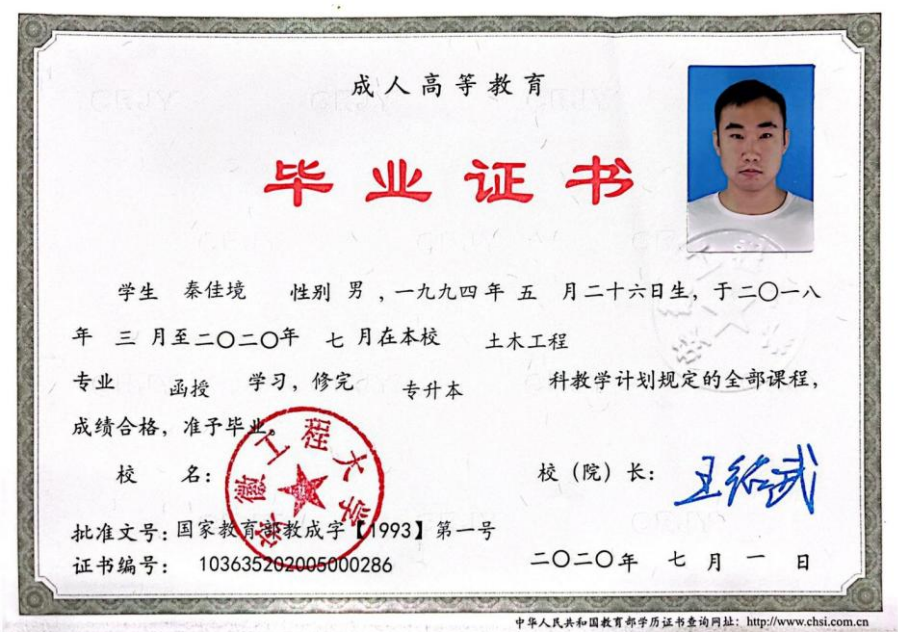 成人高等教育
毕业证书
学生 秦佳境 性别 男 ,一九九四年 五 月二十六日生,于二〇一八
年 三 月至二〇二〇年 七 月在本校 土木工程
专业 函授 学习,修完 专升本 科教学计划规定的全部课程,
成绩合格,准予毕业。
校 名: 安徽工程大学
校(院)长: 王绍武
批准文号:国家教育部教成字【1993】第一号
证书编号: 103635202005000286
二〇二〇年 七 月 一 日
中华人民共和国教育部学历证书查询网址:http://www.chsi.com.cn